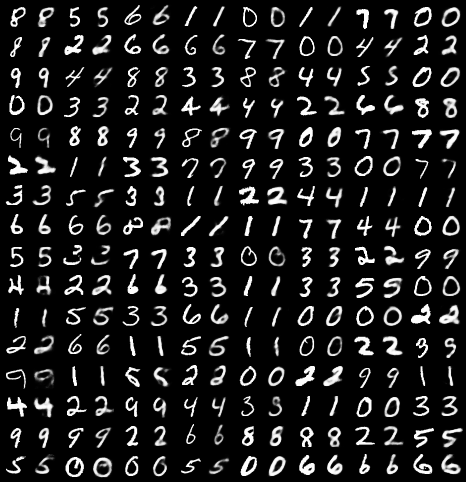 8 8 5 5 6 6 1 1 0 0 1 1 7 7 0 0
8 8 2 2 6 6 6 6 7 7 0 0 4 4 2 2
9 9 4 4 8 8 3 3 8 8 4 4 5 5 0 0
0 0 3 3 2 2 4 4 4 4 2 2 6 6 8 8
9 9 8 8 9 9 8 8 9 9 0 0 7 7 7 7
2 2 1 1 3 3 7 7 9 9 3 3 0 0 7 7
3 3 5 5 3 3 1 1 2 2 4 4 1 1 1 1
6 6 6 6 8 8 1 1 1 1 7 7 4 4 0 0
5 5 3 3 7 7 3 3 0 0 3 3 2 2 9 9
4 2 2 6 6 3 3 1 1 3 3 5 5 0 0
1 1 5 5 3 3 6 6 1 1 0 0 0 0 2 2
2 2 6 6 1 1 5 5 1 1 0 0 2 2 3 9
9 9 1 1 5 2 2 0 0 2 2 9 9 1 1
4 4 2 2 9 9 4 4 3 3 1 1 0 0 3 3
9 9 9 9 2 2 6 6 8 8 8 8 2 2 5 5
5 5 0 0 0 0 5 5 0 0 6 6 6 6 6 6